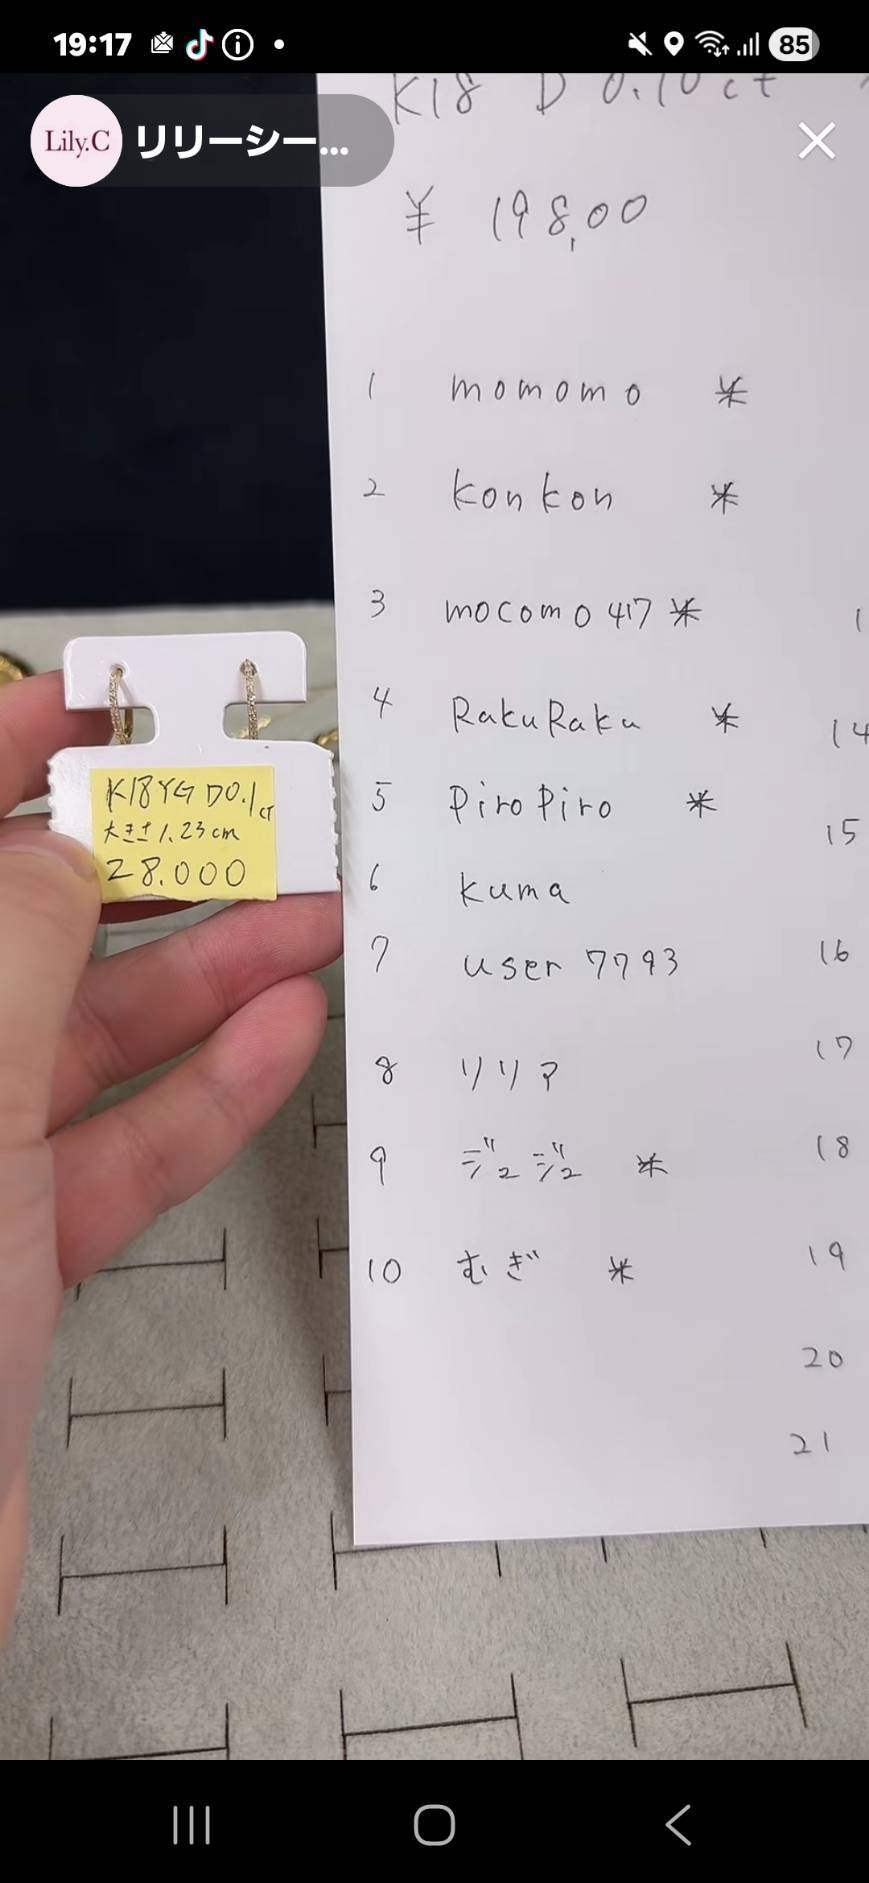 19:17
85
Lily.C リリーシー...
K18 D 0.10ct
¥ 198,00
1 momomo ※
2 konkon ※
3 mocomo417 ※
4 RakuRaku ※
5 PiroPiro ※
6 kuma
7 user 7793
8 リリア
9 ジュジュ ※
10 むぎ ※
14
15
16
17
18
19
20
21
K18YG D0.1ct
大きさ1.23cm
28.000